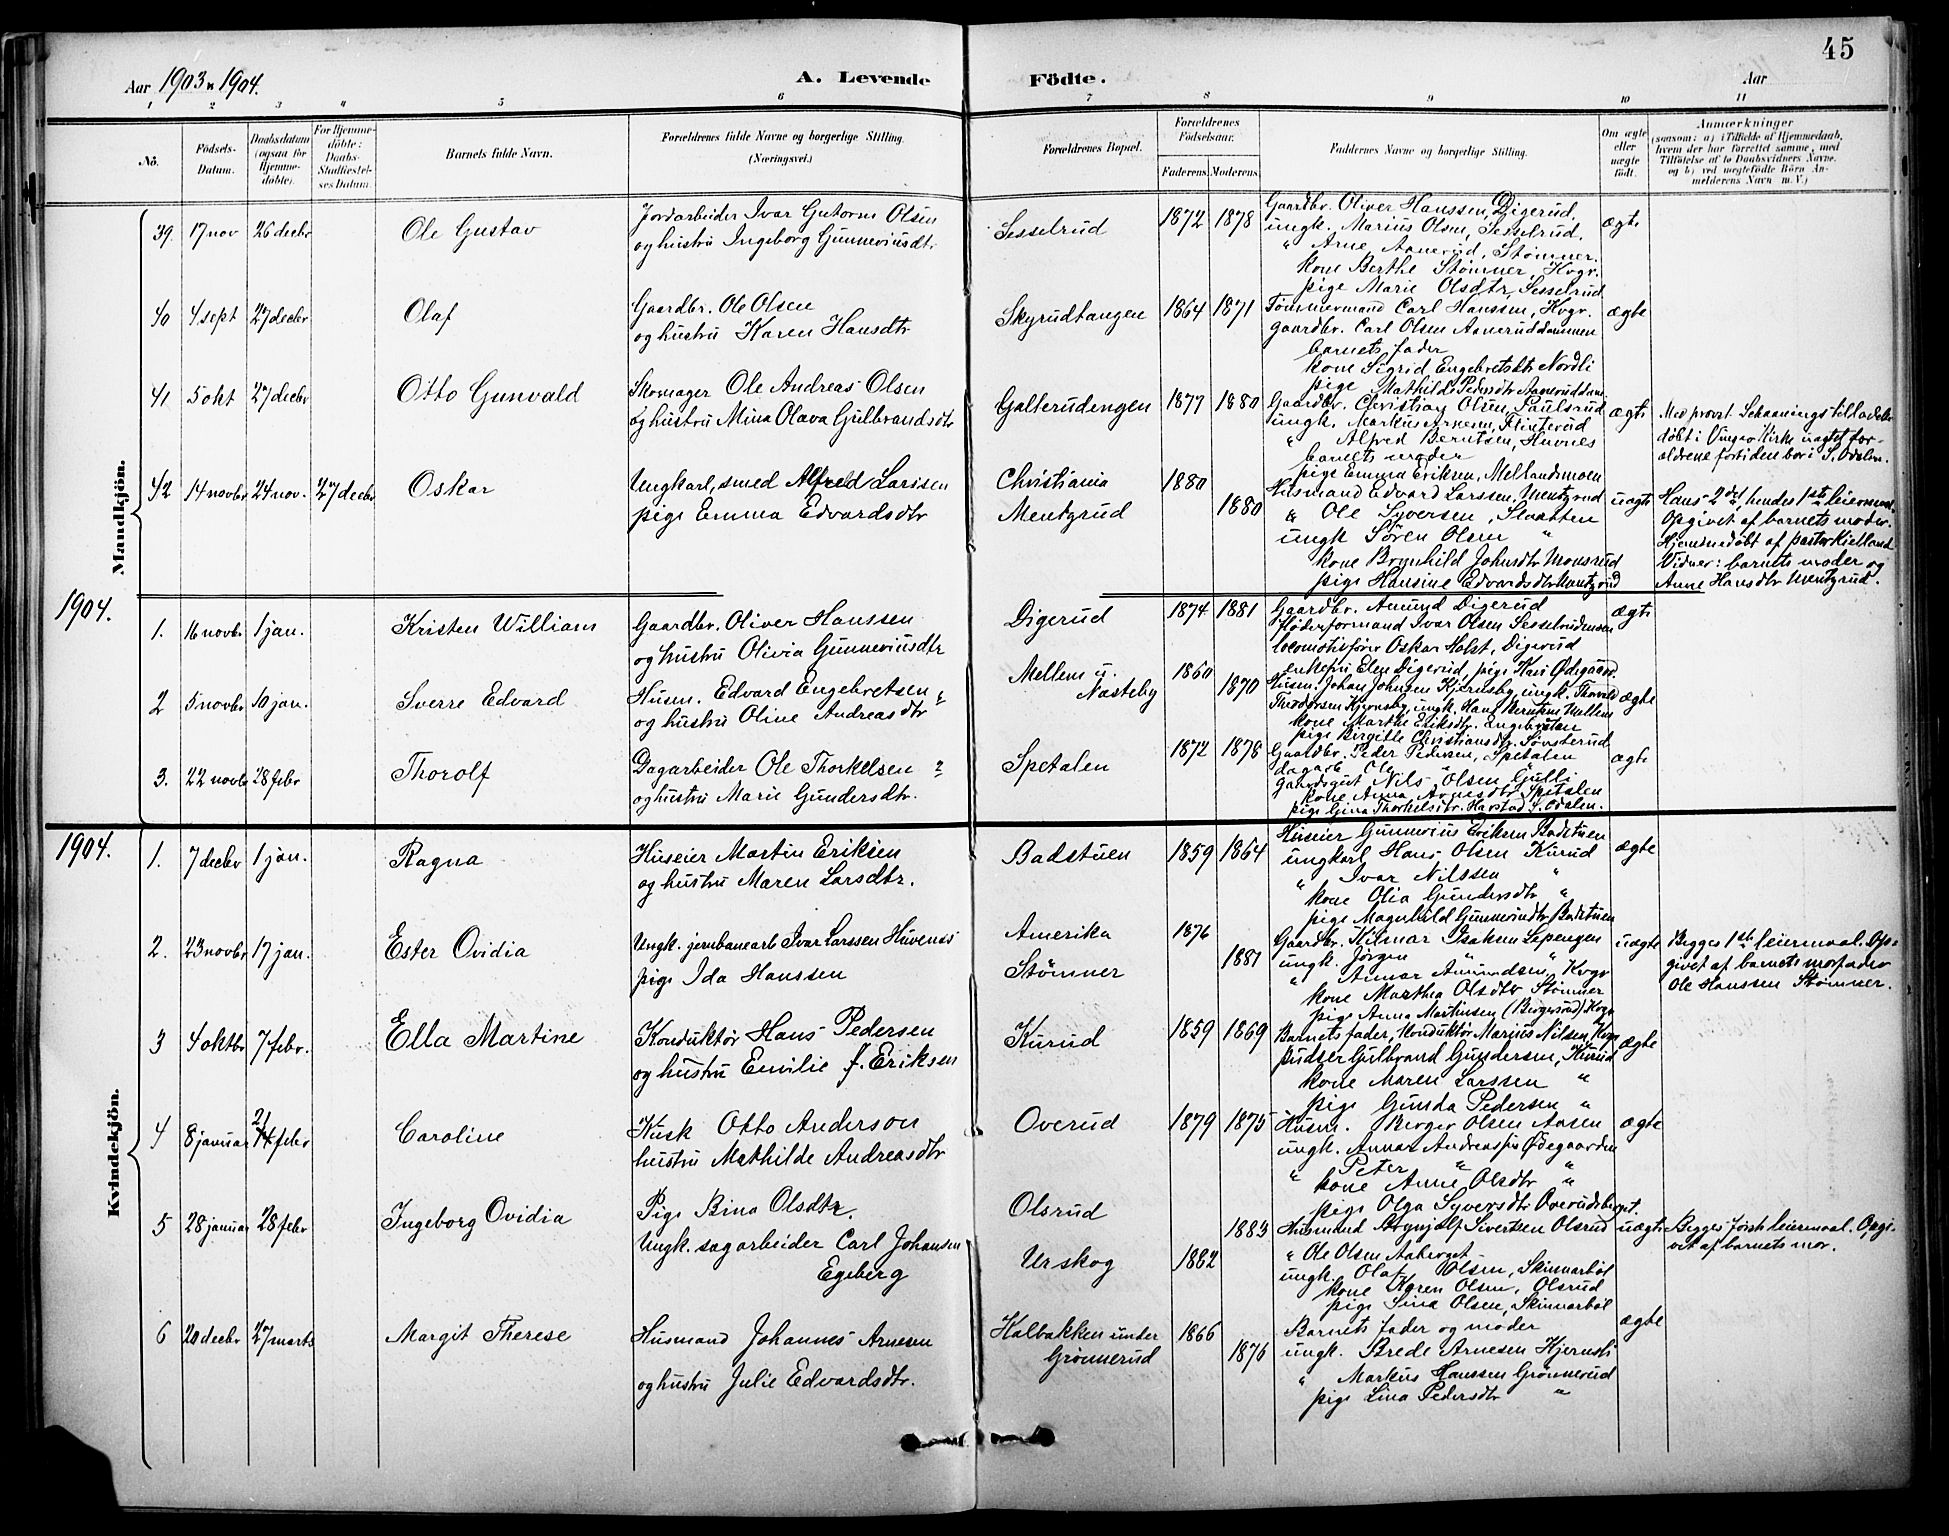 45
Aar 1903 & 1904.
A. Levende Födte.
Aar
1 2 3 4 5 6 7 8 9 10 11
No.
Födsels-Datum.
Daabsdatum (ogsaa for Hjemme-döbte).
For Hjemme-döbte: Daabs-Stadfæstel-ses Datum.
Barnets fulde Navn.
Forældrenes fulde Navne og borgerlige Stilling. (Næringsvei.)
Forældrenes Bopæl.
Forældrenes Födselsaar.
Faderens Moderens
Faddernes Navne og borgerlige Stilling.
Om ægte eller uægte födt.
Anmærkninger
(saasom: a) i Tilfælde af Hjemmedaab,
hvem der har forrettet samme, med
Tilföielse af to Daabsvidners Navne,
og b) ved uægtefödte Börn An-
melderens Navn m. V.)
Mandkjön.
39. 17 nov 26 decbr Ole Gustav
Jordarbeider Ivar Gutorm Olsen
og hustru Ingeborg Gunneriusdtr.
Sesselrud 1872 1878
Gaardbr. Oliver Hanssen, Digerud.
ungk. Marius Olsen, Sesselrud.
" Arne Aanerud, Stømner.
kone Berthe Stømner, Kvgr.
pige Marie Olsdtr, Sesselrud
ægte
40 4 sept 27 decbr Olaf
Gaardbr. Ole Olsen
og hustru Karen Hansdtr
Skyrudtangen 1864 1871
Tømmermand Carl Hanssen, Kvgr.
gaardbr. Carl Olsen Aaneruddammen
barnets fader
kone Sigrid Engebretsdtr Nordli
pige Mathilde Pedersdtr Aaneruddam
ægte
41 5 okt 27 decbr Otto Gunvald
Skomager Ole Andreas Olsen
og hustru Mina Olava Gulbrandsdtr
Galterudengen 1877 1880
Gaardbr. Christian Olsen, Paulsrud
ungk. Markus Arnesen, Flinterud
" Alfred Berntsen, Huvnes
barnets moder
pige Emma Eriksen, Mellandsmoen
ægte
Med provst Schaanings tilladelse
døbt i Vinger Kirke uagtet for-
ældrene for tiden bor i S. Odalen.
42 14 novbr 24 nov. 27 decbr Oskar
Ungkarl, smed Alfred Larssen
pige Emma Edvardsdtr
Christiania 1880
Mentgrud 1880
Husmand Edvard Larssen, Mentgrud
" Ole Syversen, Slaatten
ungk Sören Olsen "
kone Brynhild Johnsdtr Monsrud
pige Hansine Edvardsdtr Mentgrud
uægte
Hans 2det, hendes 1ste leiermaal.
Opgivet af barnets moder.
Hjemmedøbt af pastor Kielland
Vidner: barnets moder og
Anne Hansdtr Mentgrud.
1904.
1. 16 novbr 1 jan. Kristen William
Gaardbr. Oliver Hanssen
og hustru Olivia Gunneriusdtr
Digerud 1874 1881
Gaardbr. Amund Digerud
fløderformand Ivar Olsen Sesselrudensen
locomotivfører Oskar Holst, Digerud
enkefru Elen Digerud, pige Kari Ødegaard
ægte
2 5 novbr 10 jan. Sverre Edvard
Husm. Edvard Engebretsen
og hustru Oline Andreasdtr
Mellem u. Næsteby 1860 1870
Husm. Johan Johnsen Kjernsby, ungk. Thorvald
Theodorsen Kjernsby, ungk. Hans Berntsen Mellem
kone Marthe Eriksdtr. Engebretsen
pige Birgitte Christiansdtr. Sønsterud
ægte
3. 22 novbr 28 febr Thorolf
Dagarbeider Ole Thorkelsen
og hustru Marie Gundersdtr.
Spetalen 1872 1878
Gaardbr. Peder Pedersen, Spetalen
dagarb. Ole " "
gaardsgut Nils Olsen Gulli
kone Anna Arnesdtr Spetalen
pige Gina Thorkelsdtr. Harstad S. Odalen.
ægte
Kvindekjön.
1904.
1. 7 decbr 1 jan. Ragna
Huseier Martin Eriksen
og hustru Maren Larsdtr.
Badstuen 1859 1864
Huseier Gunnerius Eriksen Badstuen
ungkarl Hans Olsen Kurud
" Ivar Nilssen "
kone Olia Gundersdtr "
pige Magnhild Gunneriusdtr Badstuen
ægte
2. 23 novbr 17 jan. Ester Ovidia
Ungk. jernbanearb Ivar Larssen Huvenes
pige Ida Hanssen
Amerika 1876
Stømner 1881
Gaardbr. Hilmar Isaksen Sapengen
ungk. Jörgen " "
" Annar Amundsen, Kvgr
kone Marthea Olsdtr Stømner
pige Anna Martinsen (Bergersrud) Kvgr
uægte
Begges 1ste leiermaal. Op-
givet af barnets morfader
Ole Hanssen Stømner.
3 4 oktbr 7 febr. Ella Martine
Konduktør Hans Pedersen
og hustru Emilie f. Eriksen
Kurud 1859 1869
Barnets fader, Konduktør Marius Nilsen, Kvgr
pudser Gulbrand Gundersen, Kurud
kone Maren Larssen "
pige Gunda Pedersen "
ægte
4 8 januar 21 febr Caroline
Kusk Otto Anderson
hustru Mathilde Andreasdtr
Overud 1879 1875
Husm. Birger Olsen Aasen
ungk. Annar Andreassen Ødegaarden
" Peter " "
kone Anne Olsdtr "
pige Olga Syversdtr Overudsberget.
ægte
5 28 januar 28 febr Ingeborg Ovidia
Pige Bina Olsdtr.
Ungk. sagarbeider Carl Johansen
Egeberg
Olsrud 1883
Urskog 1882
Husmand Brynjulf Sivertsen Olsrud
" Ole Olsen Aaberget
ungk. Olaf Olsen, Skinnarbøl
kone Karen Olsen, Olsrud
pige Sina Olsen, Skinnarbøl
uægte
Begges første leiermaal. Opgi-
vet af barnets mor.
6 20 decbr 27 marts Margit Therese
Husmand Johannes Arnesen
og hustru Julie Edvardsdtr.
Kalbakken under
Grönnerud 1866 1876
Barnets fader og moder
ungk. Brede Arnesen Kjernsli
" Markus Hanssen Grönnerud
pige Lina Pedersdtr "
ægte